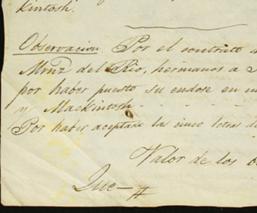 kintosh.
Observacion. Por el contrato
Mrnz del Rio, hermanos a
por haber puesto su endose en
y Mackintosh.
Por haber aceptado las cinco letras de
Valor de los
Que